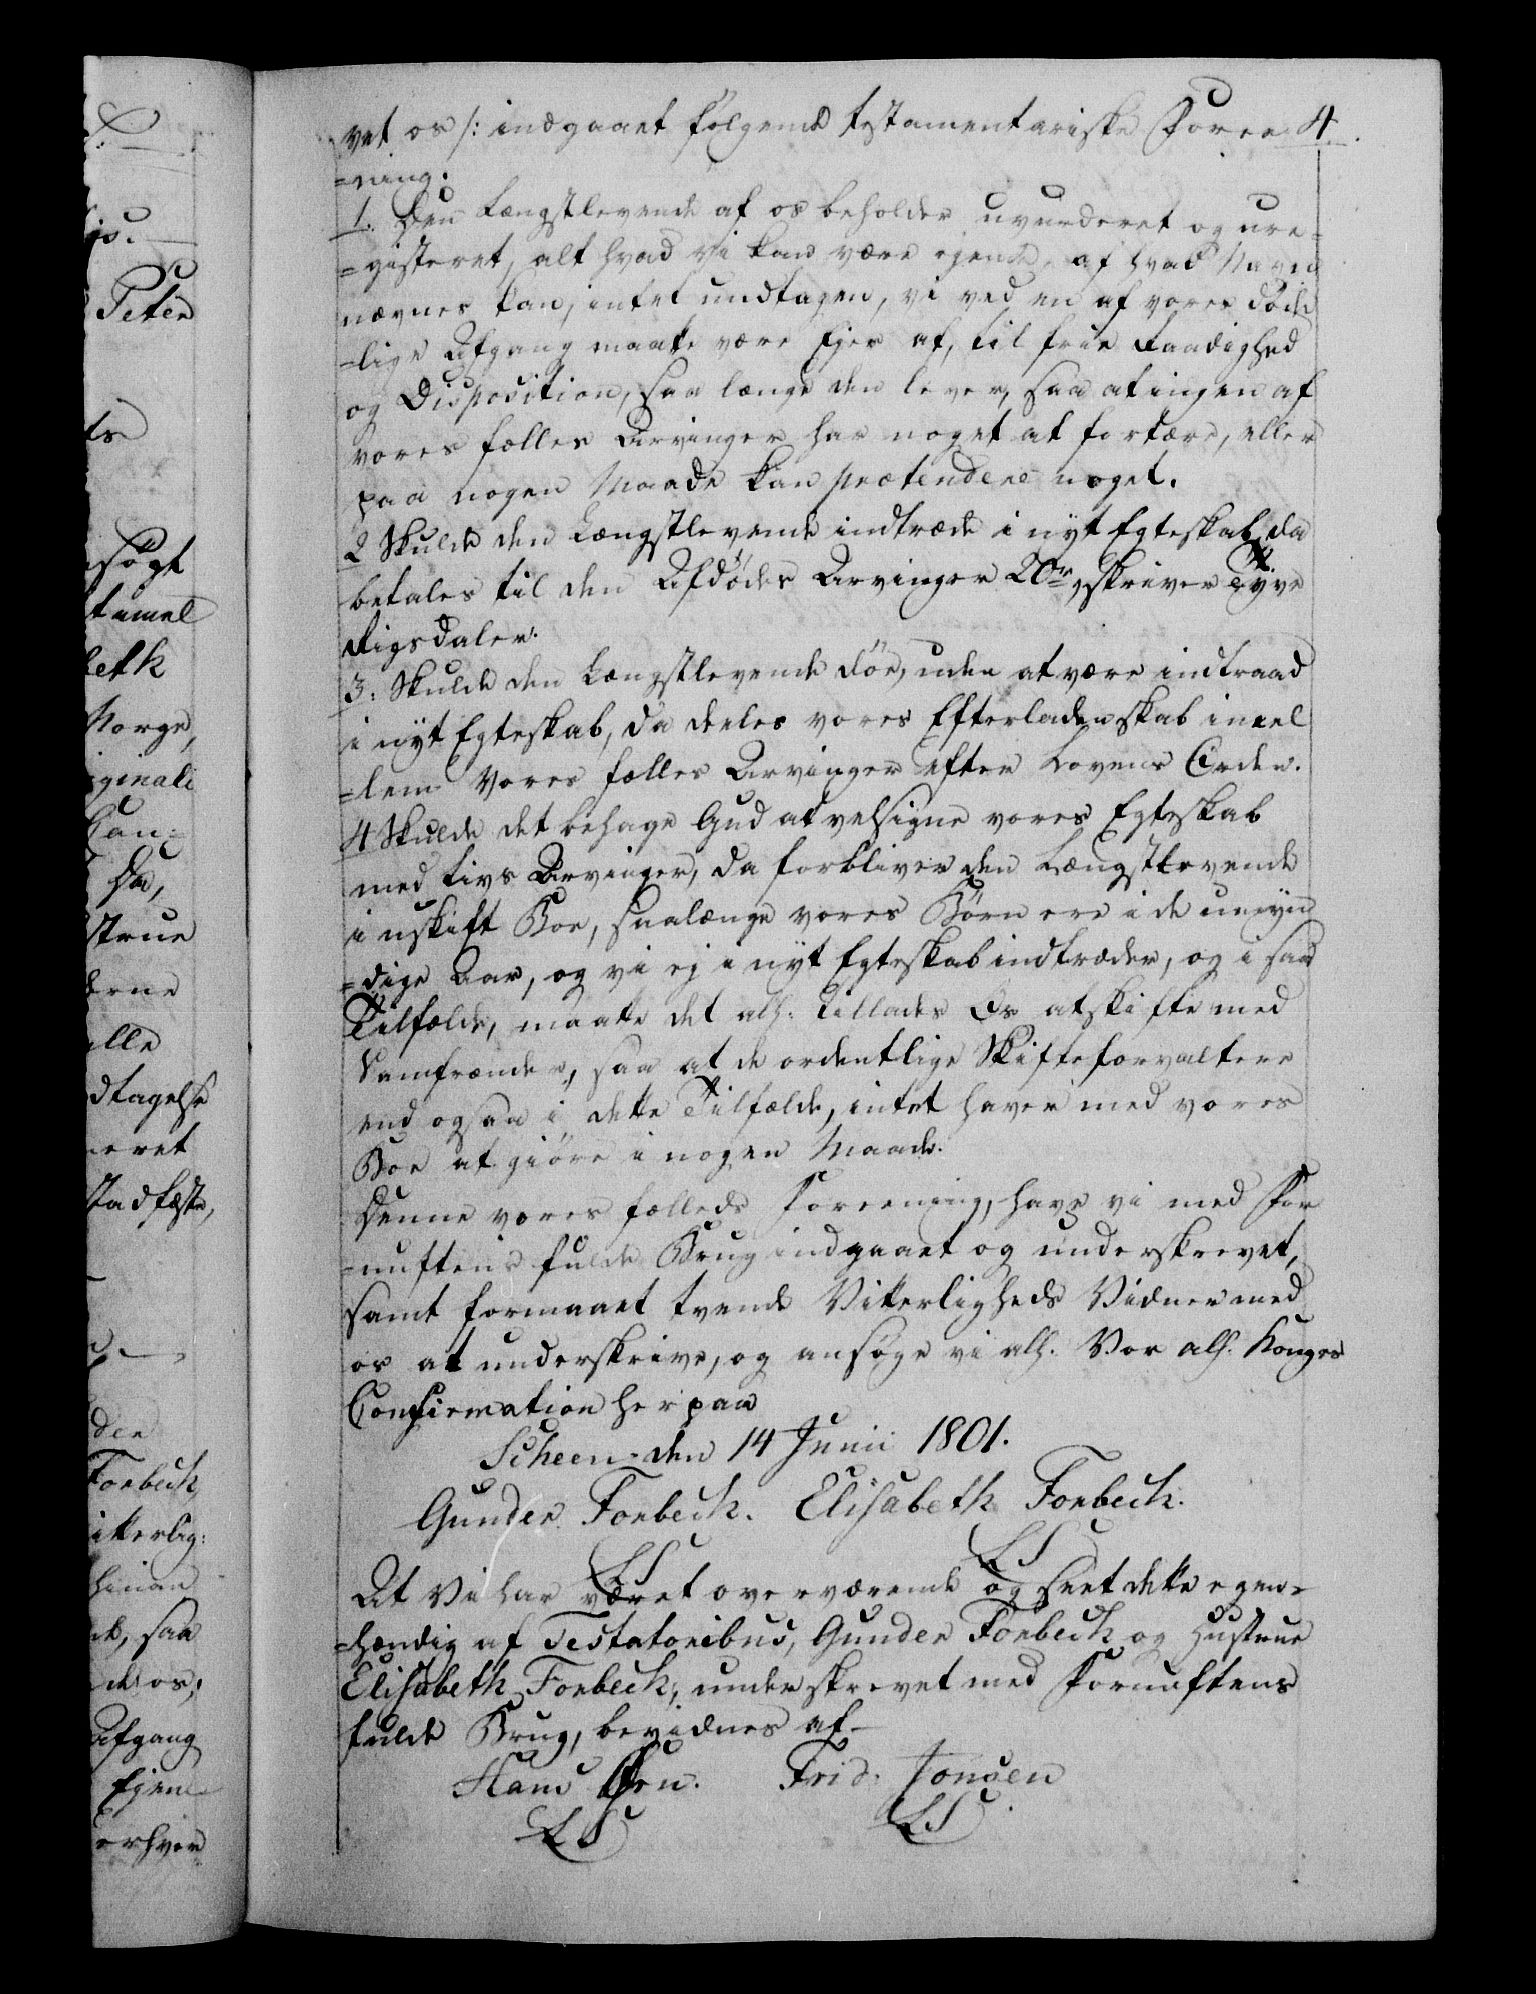 vet os /: indgaaet følgende testamentariske Foree 4
=ning.
1. Den Længstlevende af os beholder uvurderet og ure=
=gisteret, alt hvad vi kan være ejende, af hvad Navn
nævnes kan, intet undtagen, vi ved en af vores døde
=lige Afgang maatte være Ejer af, til frie Raadighed
og Disposition, saa længe den lever, saa at ingen af
vores fælles Arvinger har noget at fordre, eller
paa nogen Maade kan prætendere noget.
2 Skulde den Længstlevende indtræde i nyt Egteskab, da
betales til den Afdødes Arvinger 20 rd, skriver Tyve
Rigsdaler.
3: Skulde den Længstlevende døe, uden at være indtraad
i nyt Egteskab, da deeles vores Efterladenskab imel
=lem vores fælles Arvinger efter Lovens Orden.
4 Skulde det behage Gud at velsigne vores Egteskab
med Livs Arvinger, da forbliver den Længstlevende
i uskift Boe, saalænge vores Børn ere i de umyn
=dige Aar, og vi ej i nyt Egteskab indtræder, og i saa
Tilfælde, maatte det all: tillades Os at skifte med
Samfrænder, saa at de ordentlige Skifteforvaltere
end ogsaa i dette Tilfælde, intet haver med vores
Boe at giøre i nogen Maade.
Denne vores fælleds Foreening, have vi med For
=nuftens fulde Brug indgaaet og underskrevet,
samt formaaet tvende Vitterligheds Vidner med
os at underskrive, og ansøge vi all. Vor all. Konges
Confirmation herpaa
Scheen den 14 Junii 1801.
Gunder Forbech. Elisabeth Forbech.
LS LS
At Vi har været overværende og seet dette egen=
=hændig af Testatoribus, Gunder Forbech og Hustrue
Elisabeth Forbech, underskrevet med Fornuftens
fulde Brug, bevidnes af
Hans Frid. Jonsen
LS LS